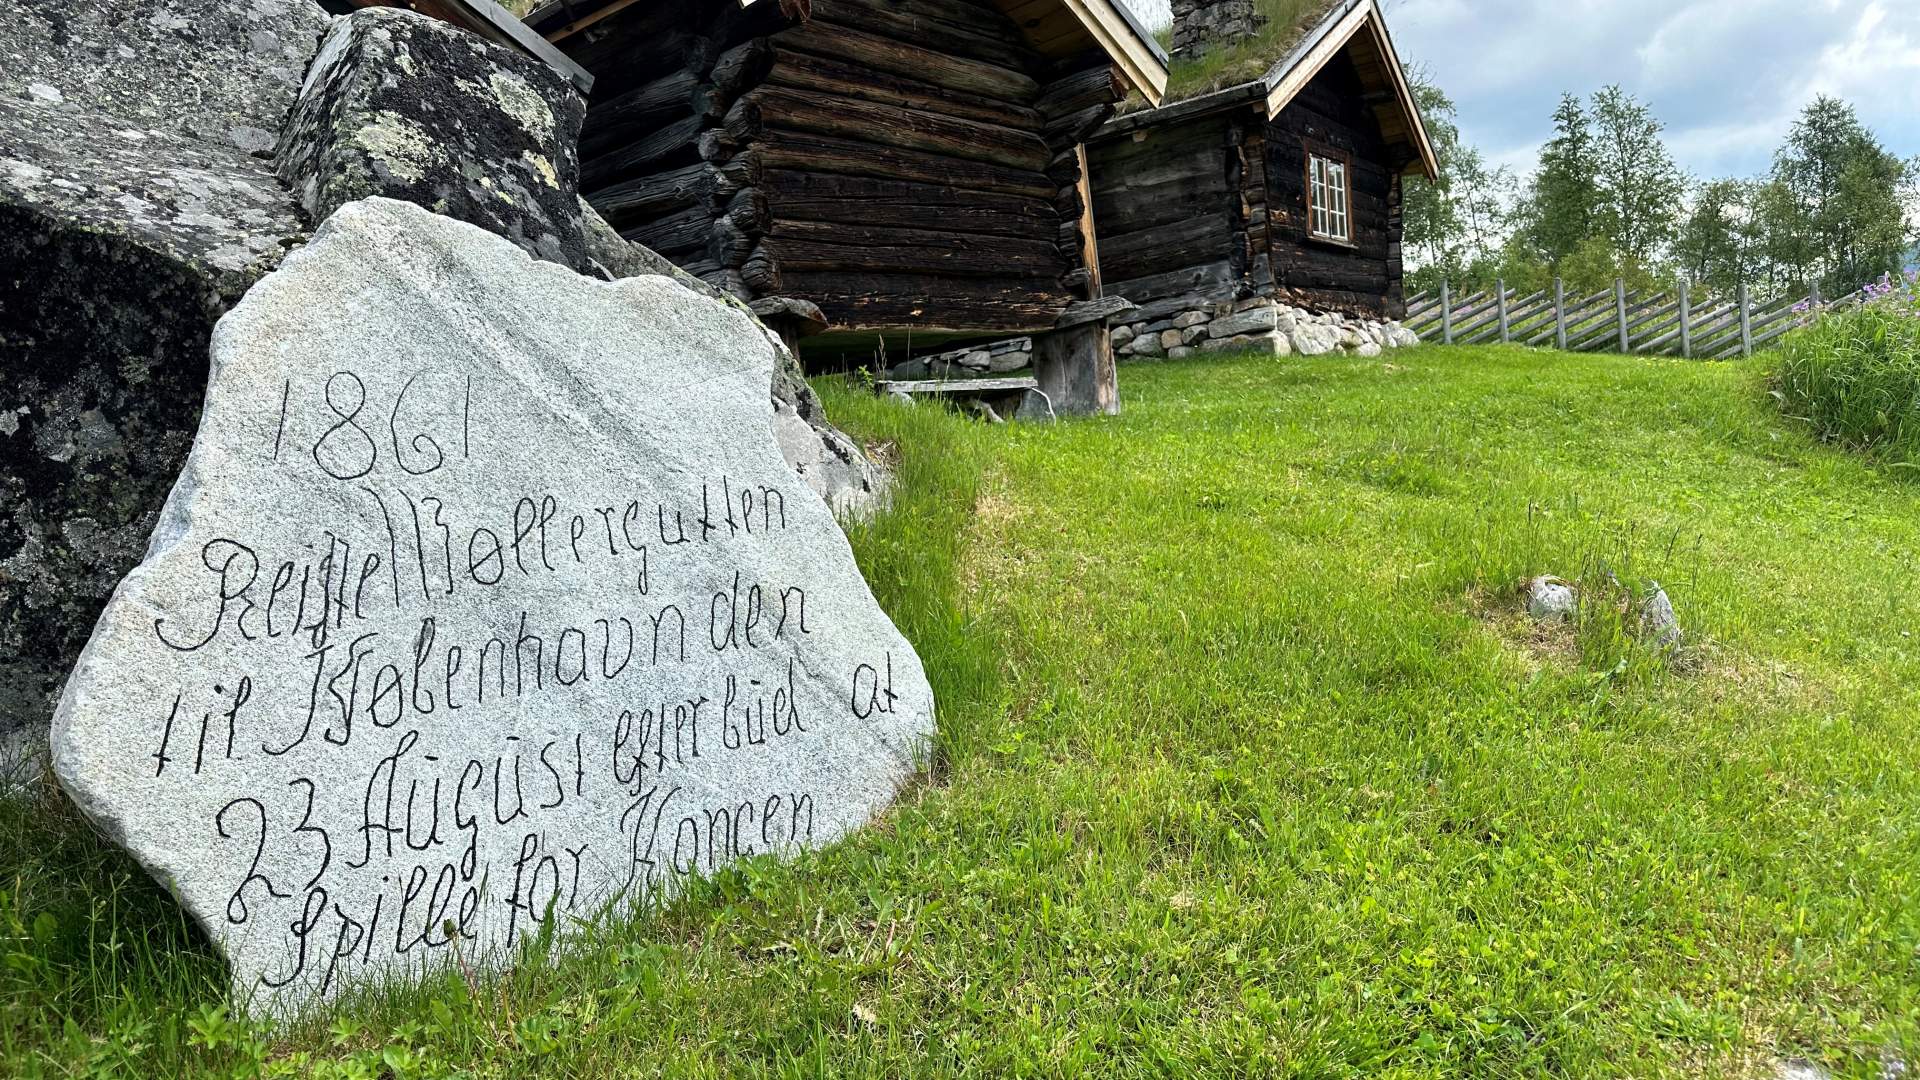 1861
Reiste Møllergutten
til København den
23 August efter büd at
Spille før Kongen